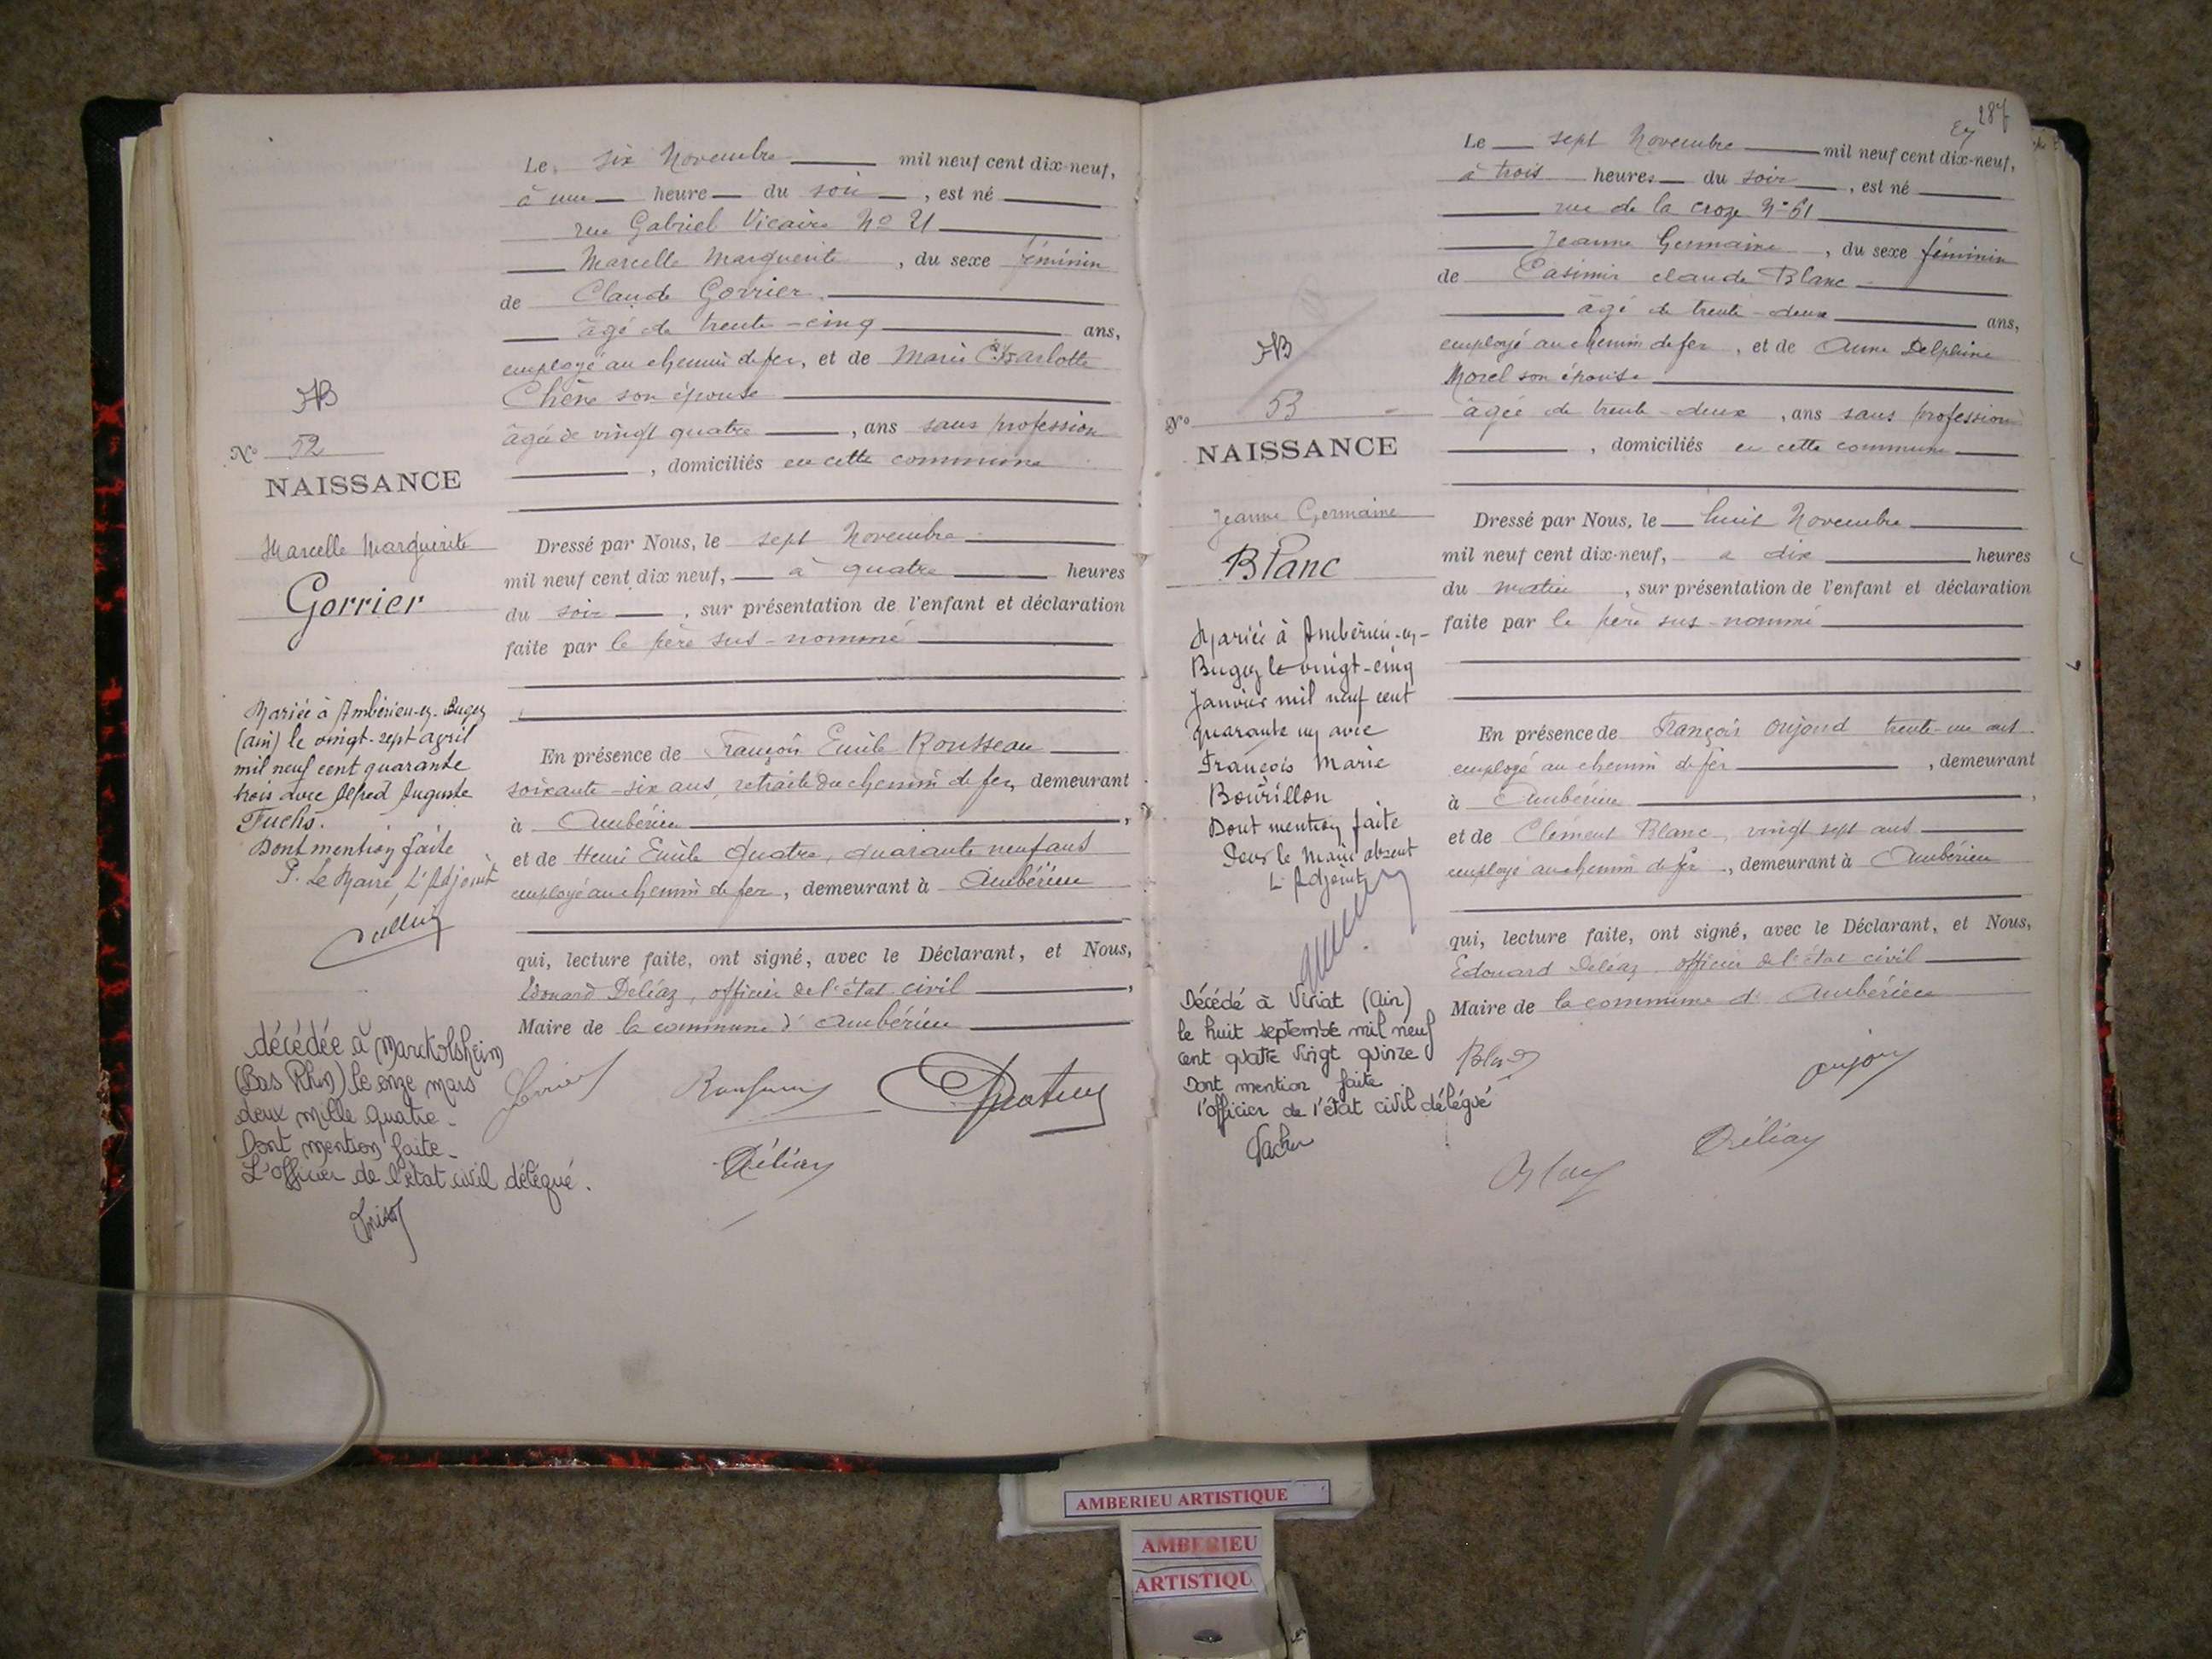 Le six Novembre mil neuf cent dix-neuf,
à une heure du soir, est né
rue Gabriel Vicaire No 21
Marcelle Marguerite, du sexe féminin
de Claude Gorrier
âgé de trente-cinq ans,
employé au chemin de fer, et de Marie Charlotte
Chêne son épouse
âgée de vingt quatre, ans sans profession
, domiciliés en cette commune
AB
No 52
NAISSANCE
Marcelle Marguerite
Gorrier
Dressé par Nous, le sept Novembre
mil neuf cent dix neuf, à quatre heures
du soir, sur présentation de l'enfant et déclaration
faite par le père sus-nommé
Mariée à Ambérieu-en-Bugey
(ain) le vingt-sept avril
mil neuf cent quarante
trois avec Alfred Auguste
Fuchs.
Dont mention faite
P. Le Maire, L'Adjoint
En présence de François Emile Rousseau
soixante-six ans, retraité du chemin de fer, demeurant
à Ambérieu,
et de Henri Emile Quatre, quarante neuf ans
employé au chemin de fer, demeurant à Ambérieu
qui, lecture faite, ont signé, avec le Déclarant, et Nous,
Edouard Deléaz, officier de l'état civil,
Maire de la commune d'Ambérieu
décédée à Marckolsheim
(Bas Rhin) le onze mars
deux mille quatre_
Dont mention faite_
L'officier de l'état civil délégué.
287
Le sept Novembre mil neuf cent dix-neuf,
à trois heures du soir, est né
rue de la croze No 61
Jeanne Germaine, du sexe féminin
de Casimir claude Blanc
âgé de trente-deux ans,
employé au chemin de fer, et de Anne Delphine
Morel son épouse
âgée de trente-deux, ans sans profession
, domiciliés en cette commune
AB
No 53
NAISSANCE
Jeanne Germaine
Blanc
Dressé par Nous, le huit Novembre
mil neuf cent dix-neuf, a dix heures
du matin, sur présentation de l'enfant et déclaration
faite par le père sus-nommé
Mariée à Ambérieu-en-
Bugey le vingt-cinq
Janvier mil neuf cent
quarante un avec
François Marie
Bourillon
Dont mention faite
Pour le Maire absent
L'Adjoint
En présence de François Oujoud trente-un ans
employé au chemin de fer, demeurant
à Ambérieu,
et de Clément Blanc, vingt sept ans
employé au chemin de fer, demeurant à Ambérieu
qui, lecture faite, ont signé, avec le Déclarant, et Nous,
Edouard Deléaz officier de l'état civil
Maire de la commune d'Ambérieu
Décédé à Viriat (Ain)
le huit septembre mil neuf
cent quatre vingt quinze
Dont mention faite
l'officier de l'état civil délégué
AMBERIEU ARTISTIQUE
AMBERIEU
ARTISTIQU